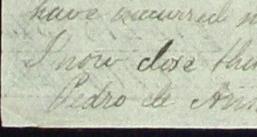 have occurred
I now close this
Pedro de